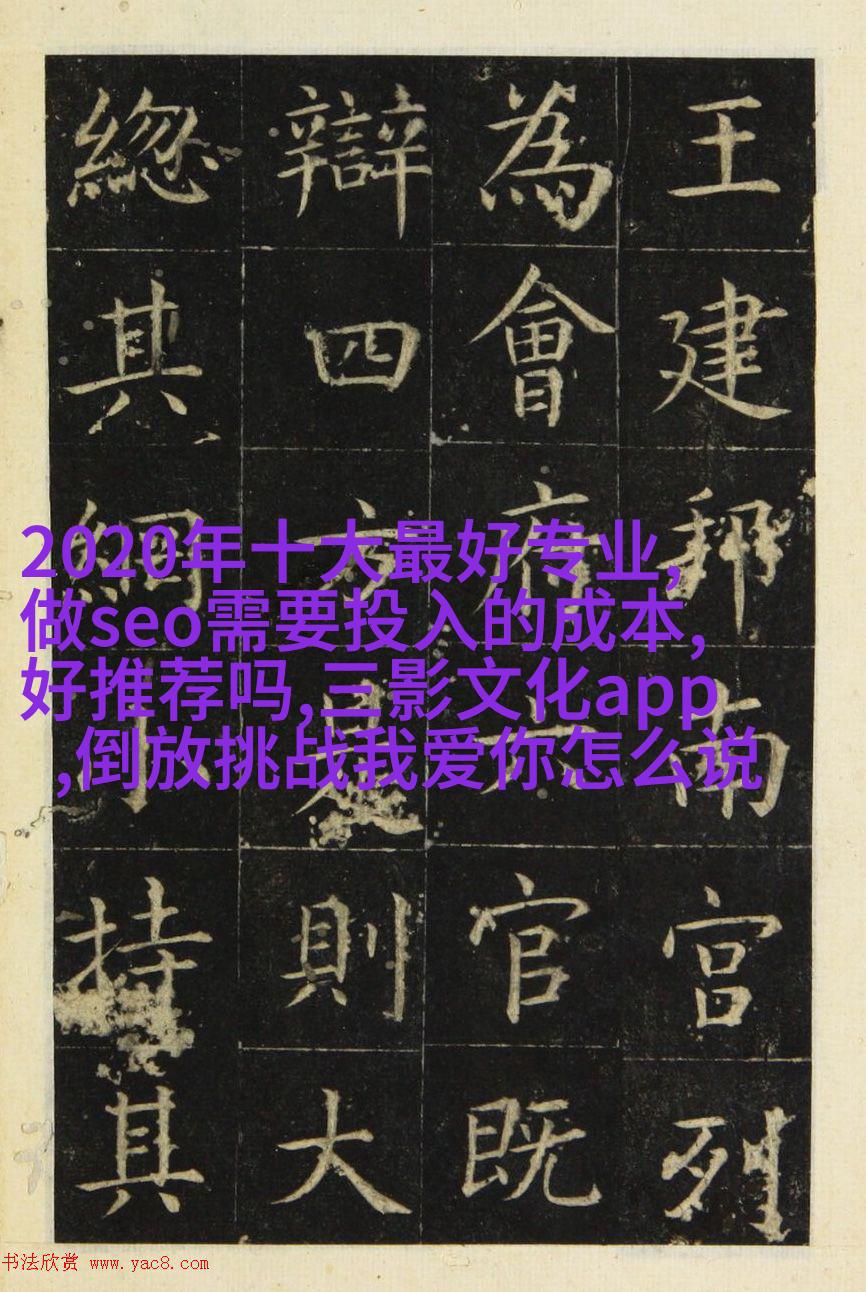 王建邦南宮列
為會府六官既
辯四方是則大
總其綱小持其
2020年十大最好专业,
做seo需要投入的成本,
好推荐吗,三影文化app
,倒放挑战我爱你怎么说
书法欣赏 www.yac8.com